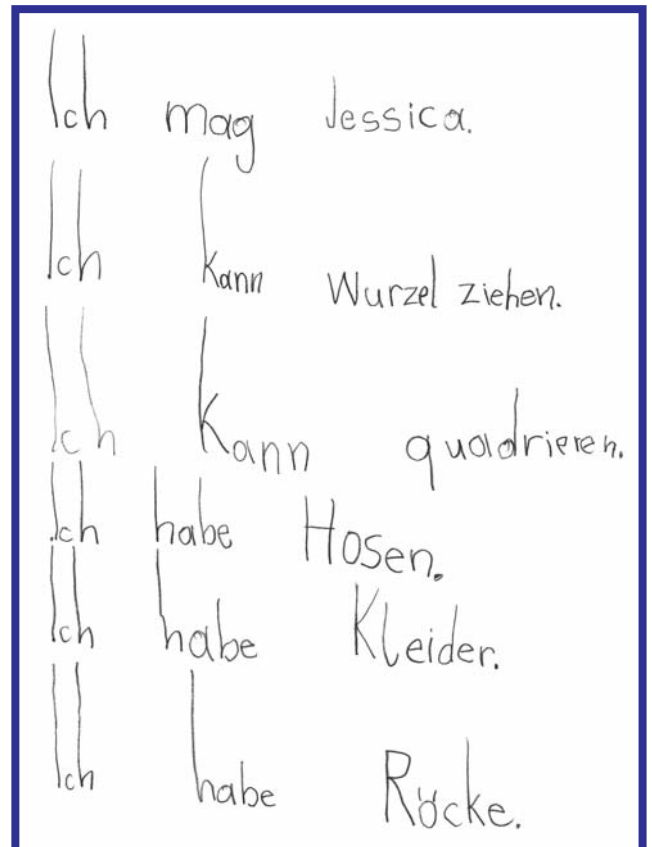 Ich mag Jessica.
Ich kann Wurzel ziehen.
Ich kann quadrieren.
Ich habe Hosen.
Ich habe Kleider.
Ich habe Röcke.